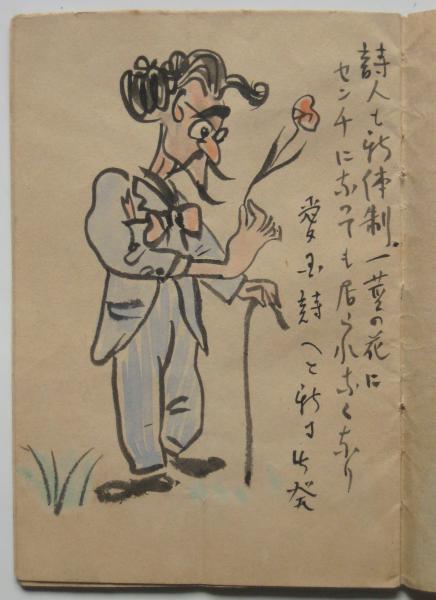 詩人も新体制。一茎の花に
センチになっても居られなくなり
愛国詩へと新マ出発